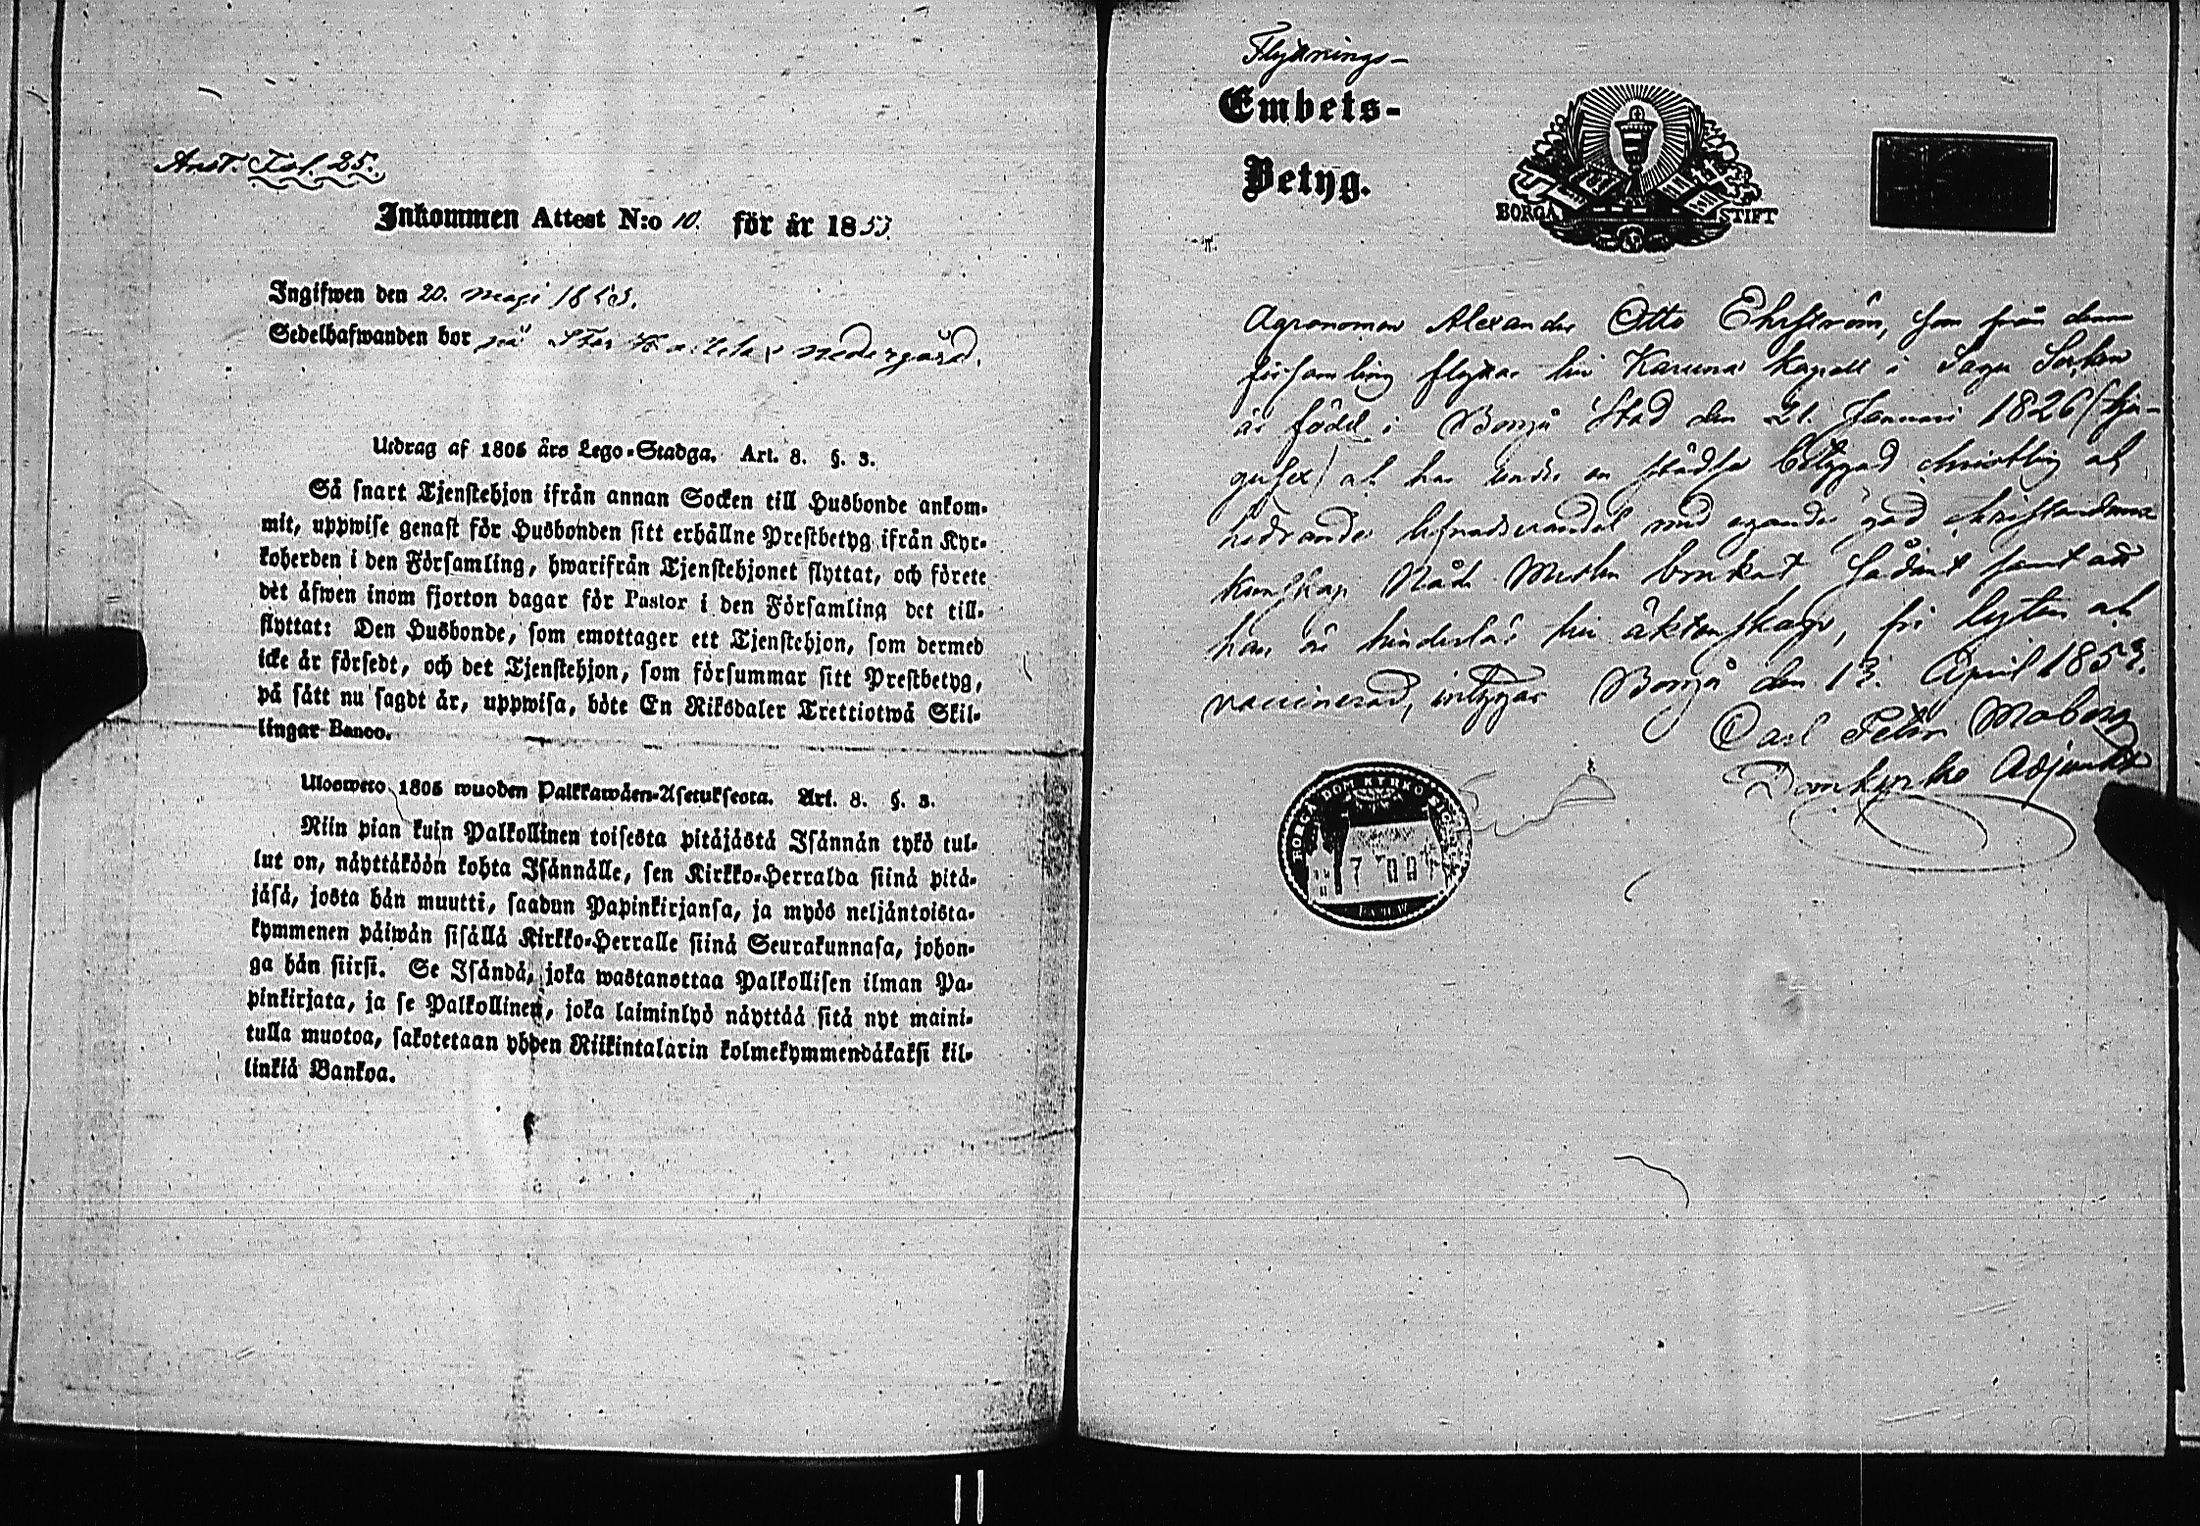 Anst. Fol. 25.
Inkommen Attest N:o 10. för år 1853.
Ingifwen den 20. maji 1853.
Sedelhafwanden bor på Stor nedergård.
Utdrag af 1805 års Lego-Stadga. Art. 8. §. 3.
Så snart Tjenstehjon ifrån annan Socken till Husbonde ankom-
mit, uppwise genast för Husbonden sitt erhållne Prestbetyg ifrån Kyr-
koherden i den Församling, hwarifrån Tjenstehjonet flyttat, och förete
det äfwen inom fjorton dagar för Pastor i den Församling det till-
flyttat: Den Husbonde, som emottager ett Tjenstehjon, som dermed
icke är försedt, och det Tjenstehjon, som försummar sitt Prestbetyg,
på sätt nu sagdt är, uppwisa, böte En Riksdaler Trettiotwå Skil-
lingar Banco.
Ulosweto 1805 wuoden Palkkawäen-Asetuksesta. Art. 8. §. 3.
Niin pian kuin Palkollinen toisesta pitäjästä Isännän tykö tul-
lut on, näyttäköön kohta Isännälle, sen Kirkko-Herralda siinä pitä-
jäsä, josta hän muutti, saadun Papinkirjansa, ja myös neljäntoista-
kymmenen päiwän sisällä Kirkko-Herralle siinä Seurakunnasa, johon-
ga hän siirsi. Se Isändä, joka wastanottaa Palkollisen ilman Pa-
pinkirjata, ja se Palkollinen, joka laiminlyö näyttää sitä nyt maini-
tulla muotoa, sakotetaan yhden Riikintalarin kolmekymmendäkaksi kil-
linkiä Bankoa.
Flyttnings-
Embets-
Betyg.
BORGÅ STIFT
Agronomen Alexander Otto Ehrström, som från denna
församling flyttar till Karuna Kapell i Sagu Socken
är född i Borgå Stad den 21. Januari 1826 (tju-
gusex) och har under en städse betygad christlig och
hedrande lefnadsvandel med egande god christendoms
kunskap Nåde Medlen brukat sådant samt att
han är hinderlös till äktenskap, fri lyten och
vaccinerad, intygar Borgå den 13. April 1853.
Carl Petter Moberg
Domkyrko Adjunkt
BORGÅ DOMKYRKO